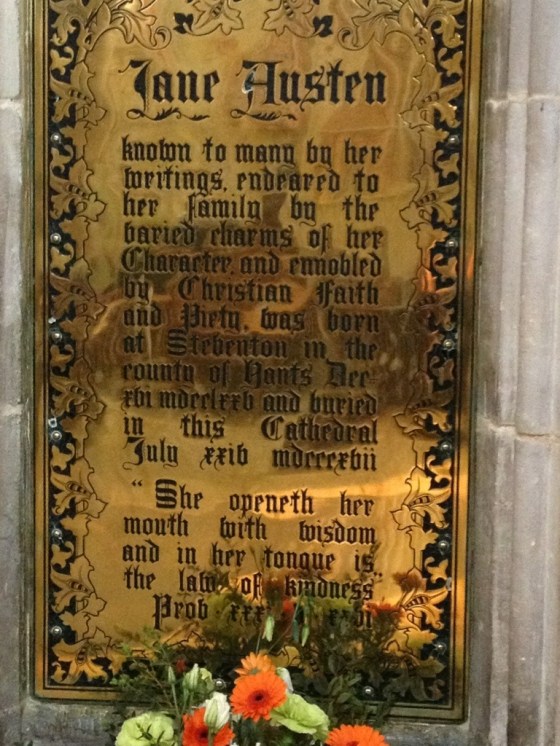 Jane Austen
known to many by her
writings, endeared to
her family by the
varied charms of her
Character, and ennobled
by Christian Faith
and Piety, was born
at Steventon in the
county of Hants Dec
xvi mdcclxxv and buried
in this Cathedral
July xxiv mdcccxvii
"She openeth her
mouth with wisdom
and in her tongue is
the law of kindness"
Prov xxvi